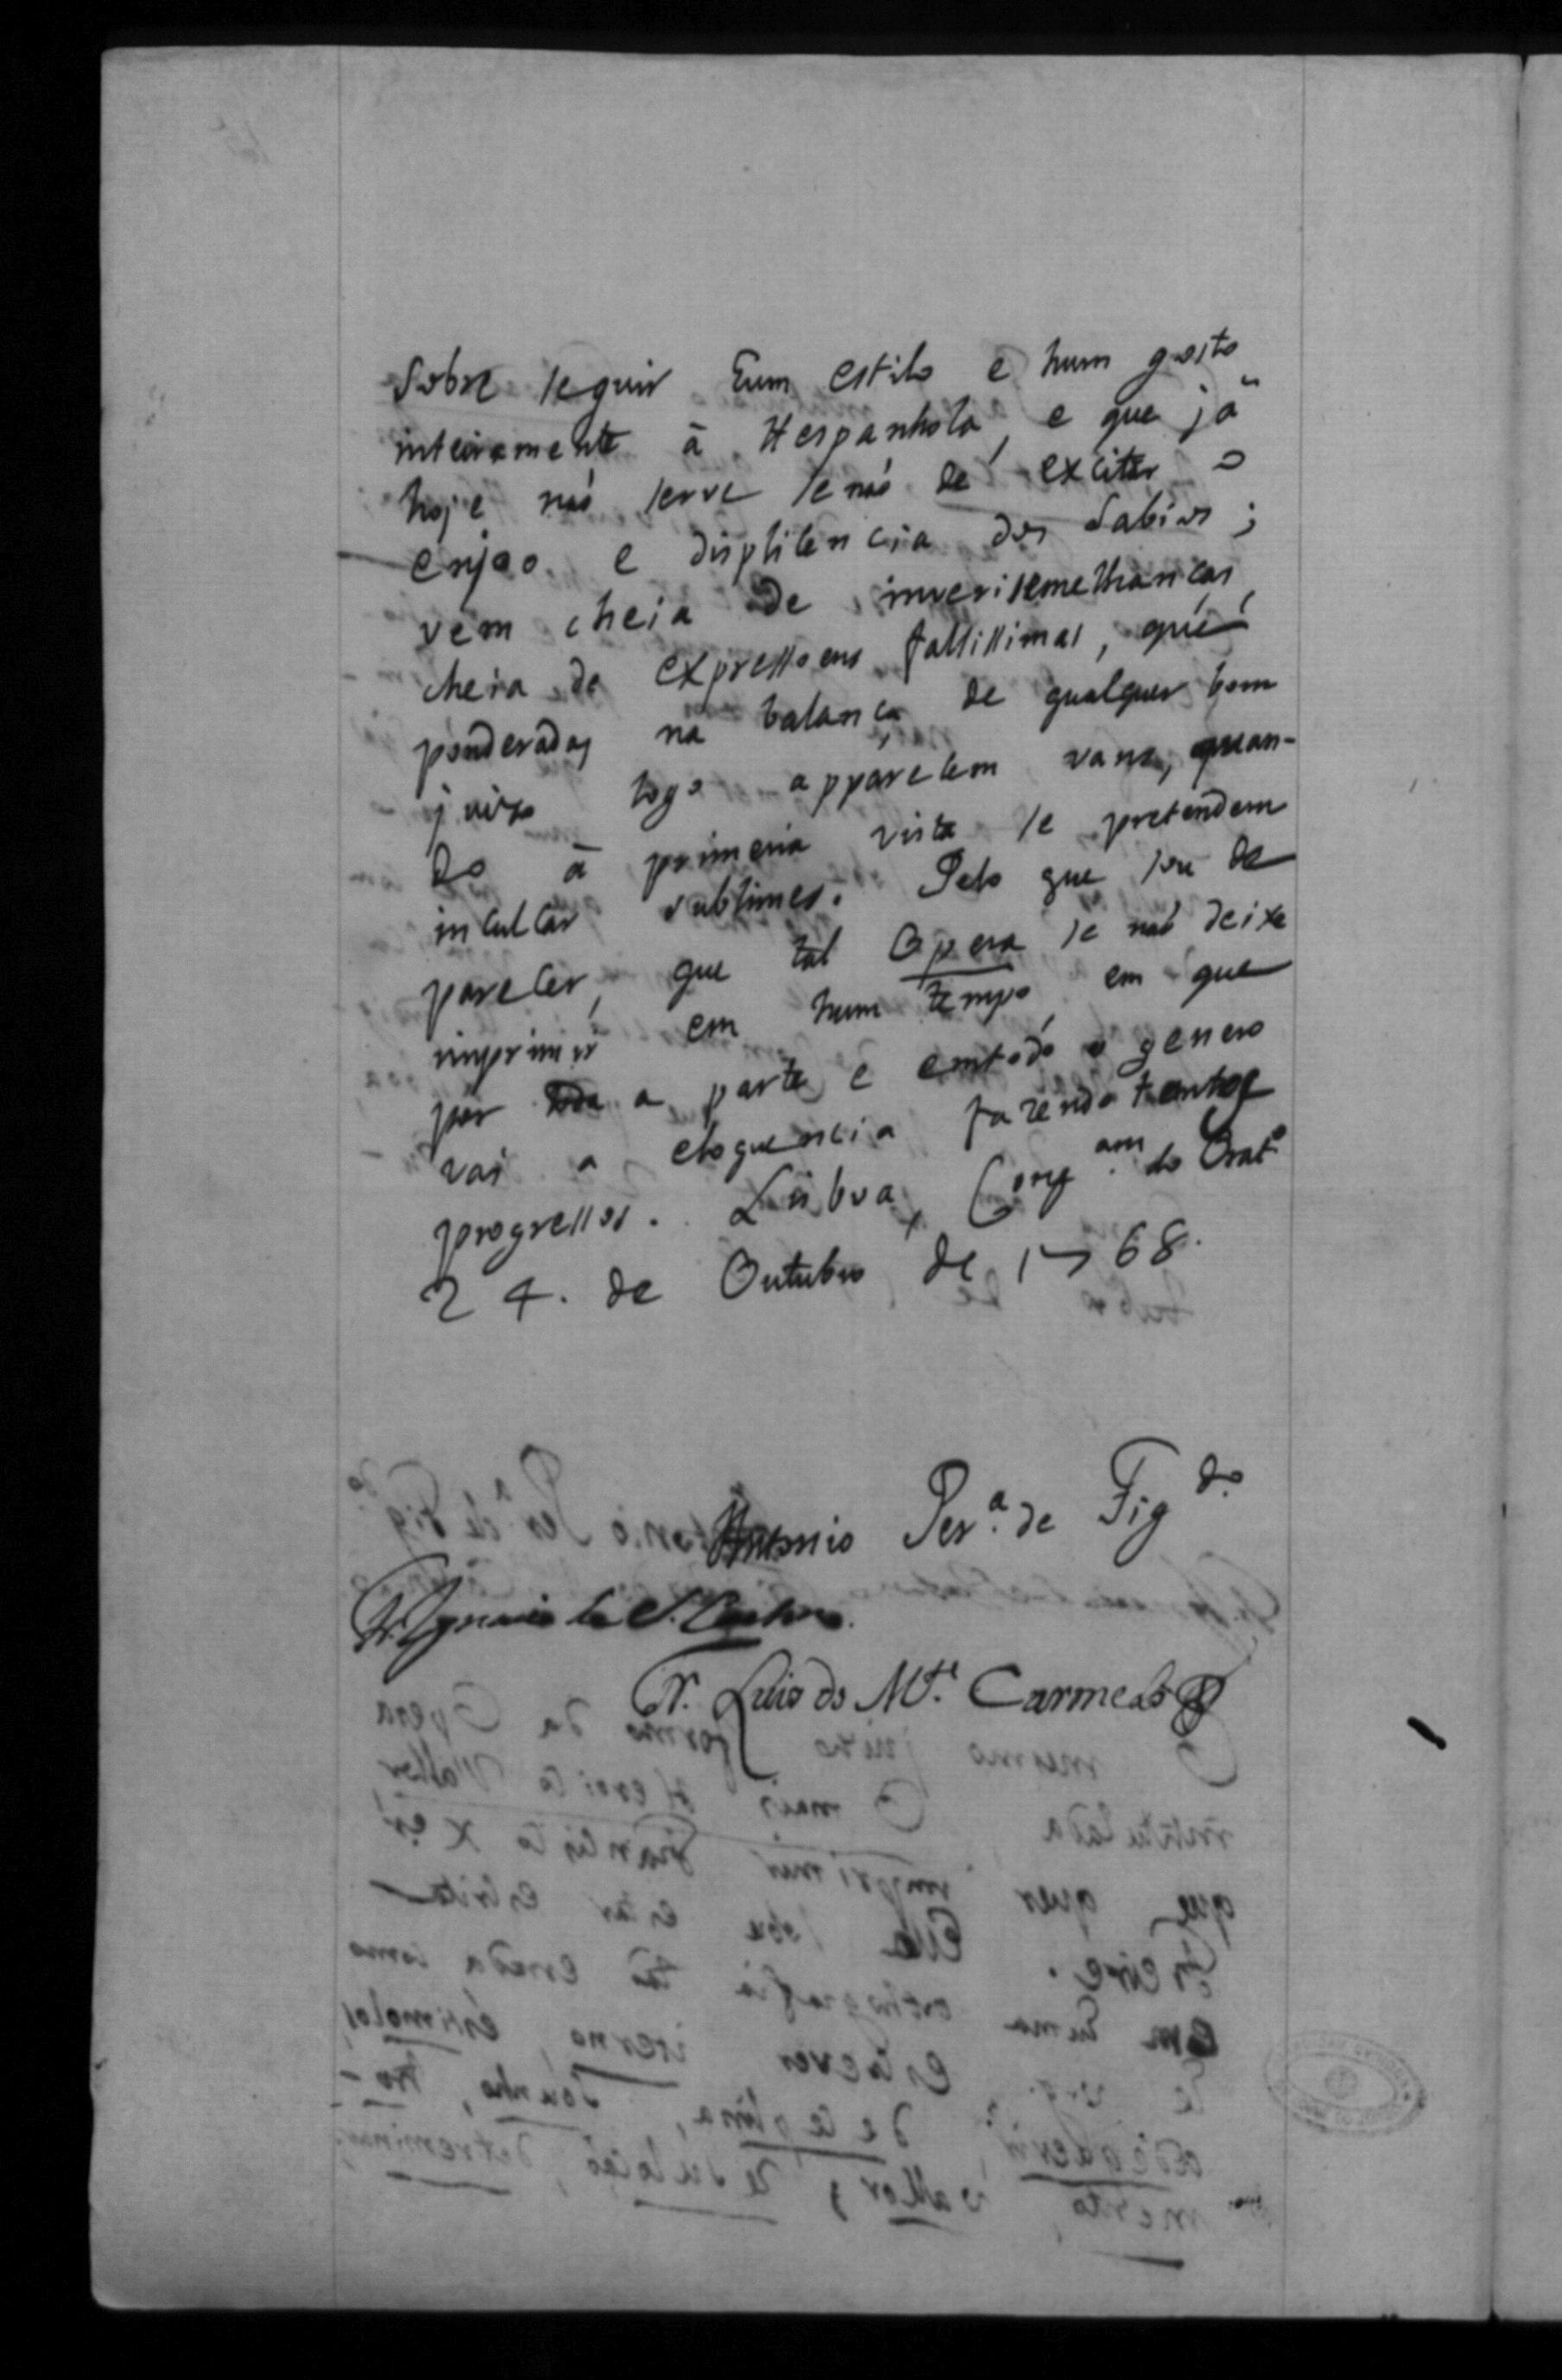 Sobre seguir hum estilo e hum gosto
inteiramente à Hespanhola, e que já
hoje naõ serve senaõ de excitar o
enjoo e displicencia dos Sabios;
vem cheia de inverisemelhanças,
cheia de expressoens falsissimas, que
ponderadas na balança de qualquer bom
juizo logo apparecem vans, quan-
do à primeira vista se pretendem
inculcar sublimes. Pelo que sou de
parecer, que tal Opera se naõ deixe
imprimir em hum tempo, em que
por toda a parte e em todo o genero
vai a eloquencia fazendo tantos
progressos. Lisboa, Congam. do Orato
24. de Outubro de 1768.
Antonio Per.a de Fig.do
Fr. Ignacio de S. Caetano.
Fr. Luis do Mte. Carmelo